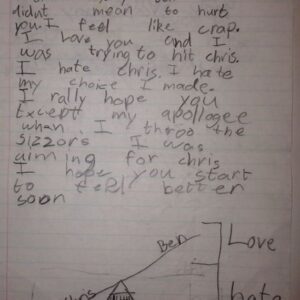 didnt mean to hurt
you. I feel like crap.
I love you and I
was trying to hit chris.
I hate chris. I hate
my choice I made.
I rally hope you
Except my apologee
when I throo the
sizzors I was
aiming for chris
I hope you start
to feel better
soon
Ben
Love
chris
hate